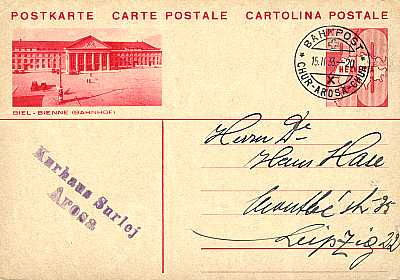 POSTKARTE CARTE POSTALE CARTOLINA POSTALE
BAHNPOST
15.II.33.-20
CHUR-AROSA-CHUR
HELV
BIEL-BIENNE (BAHNHOF)
Kurhaus Surlej
Arosa
Herrn Dr
Hans Hase
str. 35
Leipzig 22